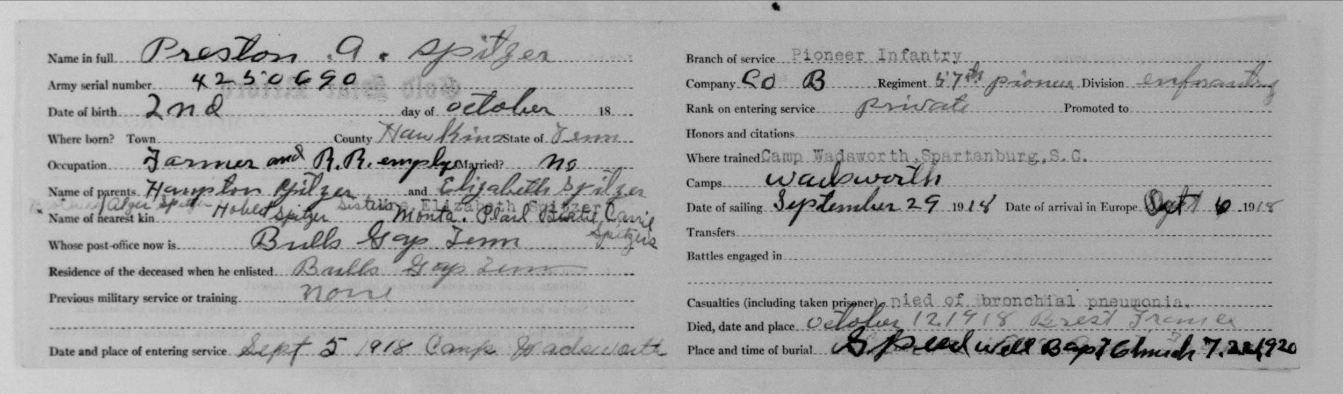 Name in full Preston. A. Spitzer
Army serial number 4250690
Date of birth 2nd day of october 18
Where born? Town County Hawkins State of Tenn
Occupation Farmer and R.R. employ Married? no
Name of parents Hampton Spitzer and Elizabeth Spitzer
Alger Spitzer Hobert Spitzer Sisters, Elizabeth Spitzer
Name of nearest kin Monta. Pearl Carri Spitzers
Whose post-office now is Bulls Gap Tenn
Residence of the deceased when he enlisted Bulls Gap Tenn
Previous military service or training none
Date and place of entering service Sept 5 1918 Camp Wadsworth
Branch of service Pioneer Infantry
Company Co B Regiment 57th pioneer Division
Rank on entering service private Promoted to
Honors and citations
Where trained Camp Wadsworth, Spartanburg, S.C.
Camps Wadsworth
Date of sailing September 29 1918 Date of arrival in Europe Oct 6 1918
Transfers
Battles engaged in
Casualties (including taken prisoner) Died of bronchial pneumonia.
Died, date and place October 12 1918 Brest France
Place and time of burial Speedwell Bapt Church 7.22.1920